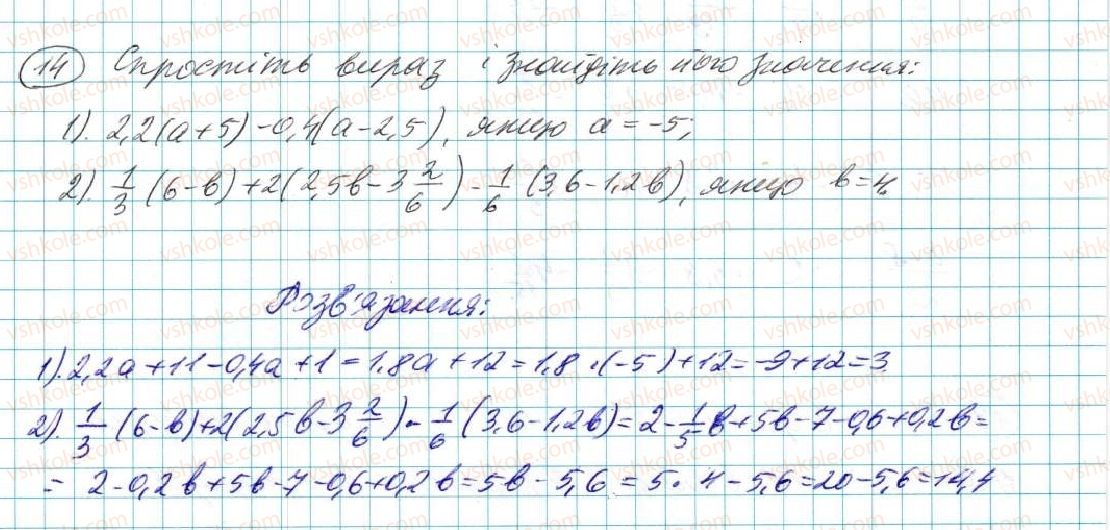 14 Спростіть вираз і знайдіть його значення:
1). 2,2(a+5)-0,4(a-2,5), якщо a=-5;
2). 1/3 (6-b)+2(2,5b-3 2/6)-1/6 (3,6-1,2b), якщо b=4.
Розв'язання:
1). 2,2a+11-0,4a+1=1,8a+12=1,8·(-5)+12=-9+12=3.
2). 1/3 (6-b)+2(2,5b-3 2/6)-1/6 (3,6-1,2b)=2-1/5 b+5b-7-0,6+0,2b=
= 2-0,2b+5b-7-0,6+0,2b=5b-5,6=5·4-5,6=20-5,6=14,4